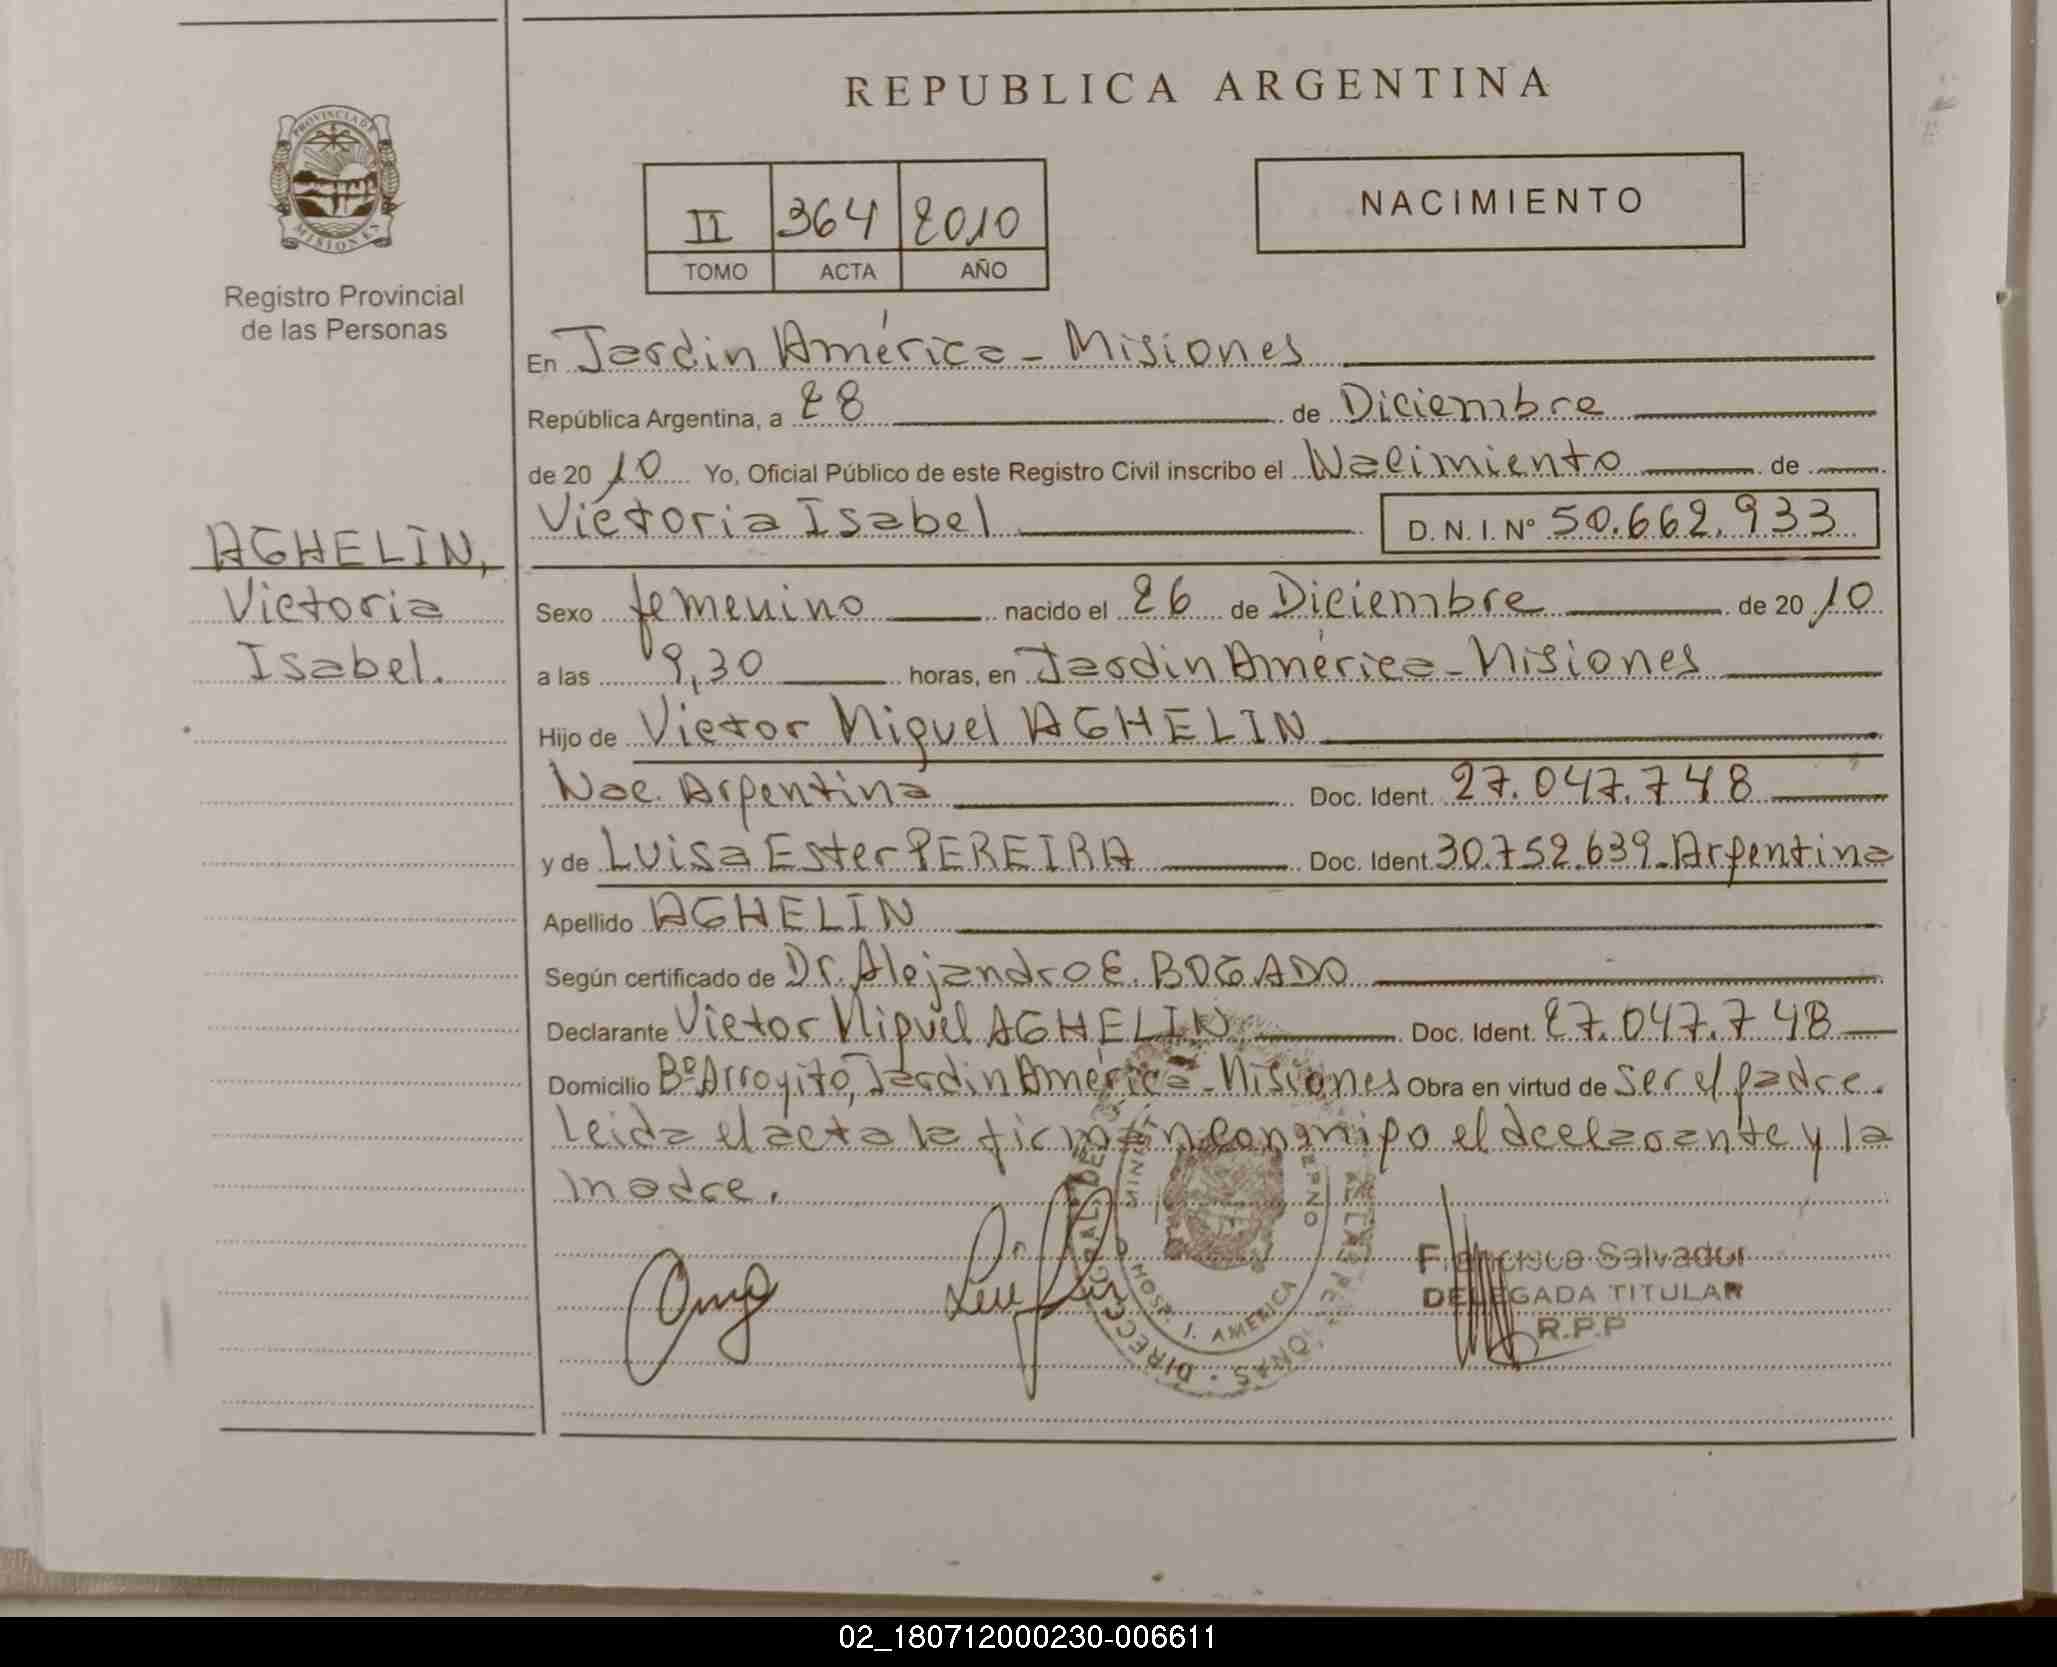 REPUBLICA ARGENTINA
PROVINCIA DE
MISIONES
Registro Provincial
de las Personas
II 364 2010
TOMO ACTA AÑO
NACIMIENTO
En Jardin América - Misiones
República Argentina, a 28 de Diciembre
de 2010 Yo, Oficial Público de este Registro Civil inscribo el Nacimiento de
Victoria Isabel D. N. I. Nº 50.662.933
AGHELIN,
Victoria
Isabel.
Sexo femenino nacido el 26 de Diciembre de 2010
a las 9,30 horas, en Jardin América - Misiones
Hijo de Victor Miguel AGHELIN
Nac. Argentina Doc. Ident. 27.047.748
y de Luisa Ester PEREIRA Doc. Ident. 30.752.639 - Argentina
Apellido AGHELIN
Según certificado de Dr. Alejandro E. BOGADO
Declarante Victor Miguel AGHELIN Doc. Ident. 27.047.748
Domicilio Bº Arroyito, Jardin América - Misiones Obra en virtud de ser el padre.
Leida el acta la firman conmigo el declarante y la
madre.
Francisco Salvador
DELEGADA TITULAR
R.P.P
HOSP. J. AMERICA
02_180712000230-006611